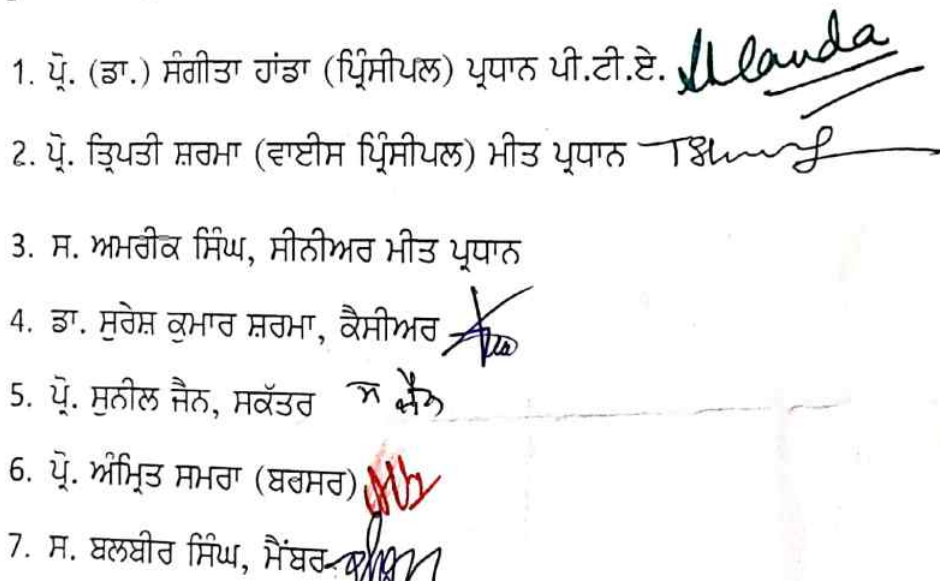 1. ਪ੍ਰੋ. (ਡਾ.) ਸੰਗੀਤਾ ਹਾਂਡਾ (ਪ੍ਰਿੰਸੀਪਲ) ਪ੍ਰਧਾਨ ਪੀ.ਟੀ.ਏ.
2. ਪ੍ਰੋ. ਤ੍ਰਿਪਤੀ ਸ਼ਰਮਾ (ਵਾਈਸ ਪ੍ਰਿੰਸੀਪਲ) ਮੀਤ ਪ੍ਰਧਾਨ
3. ਸ. ਅਮਰੀਕ ਸਿੰਘ, ਸੀਨੀਅਰ ਮੀਤ ਪ੍ਰਧਾਨ
4. ਡਾ. ਸੁਰੇਸ਼ ਕੁਮਾਰ ਸ਼ਰਮਾ, ਕੈਸੀਅਰ
5. ਪ੍ਰੋ. ਸੁਨੀਲ ਜੈਨ, ਸਕੱਤਰ
6. ਪ੍ਰੋ. ਅੰਮ੍ਰਿਤ ਸਮਰਾ (ਬਰਸਰ)
7. ਸ. ਬਲਬੀਰ ਸਿੰਘ, ਮੈਂਬਰ